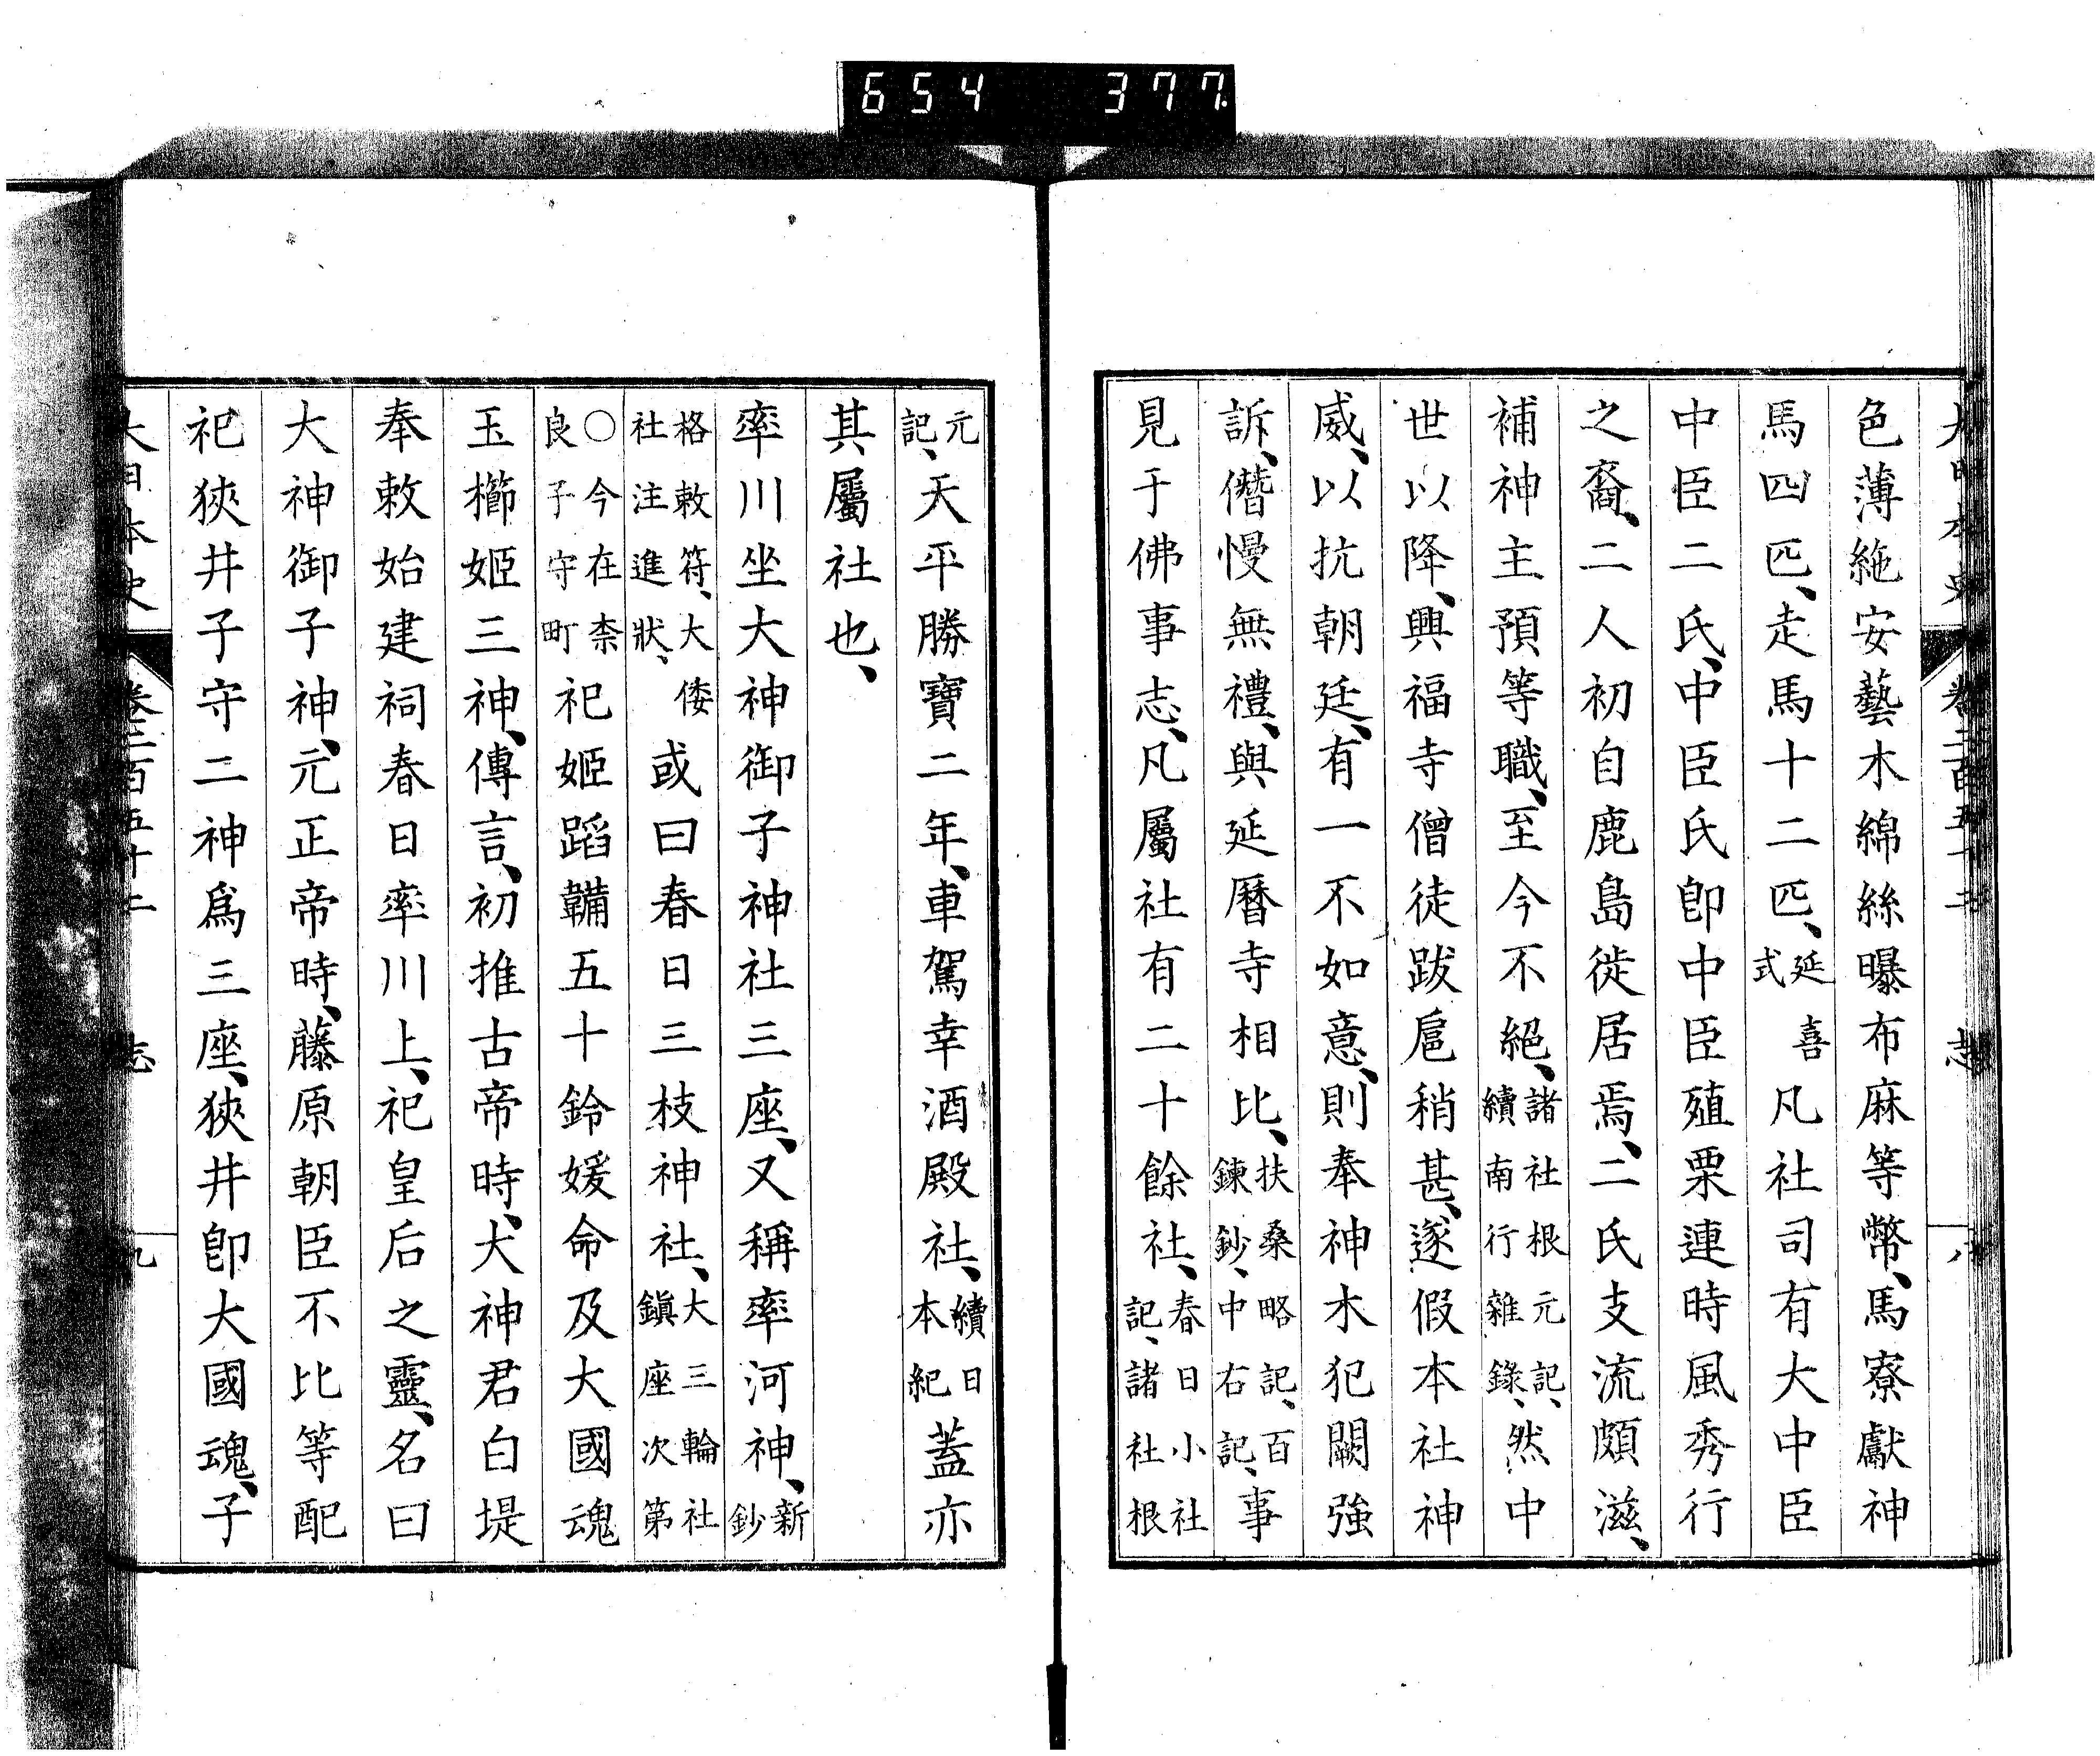 654 377
大日本史 卷二百五十二 志 八
色薄絁安藝木綿絲曝布麻等幣、馬寮獻神
馬四匹、走馬十二匹、延喜式凡社司有大中臣
中臣二氏、中臣氏卽中臣殖栗連時風秀行
之裔、二人初自鹿島徙居焉、二氏支流頗滋、
補神主預等職、至今不絕、諸社根元記、續南行雜錄、然中
世以降、興福寺僧徒跋扈稍甚、遂假本社神
威、以抗朝廷、有一不如意、則奉神木犯闕強
訴、僭慢無禮、與延曆寺相比、扶桑略記、百鍊鈔、中右記、事
見于佛事志、凡屬社有二十餘社、春日小社記、諸社根
元記、天平勝寶二年、車駕幸酒殿社、續日本紀蓋亦
其屬社也、
率川坐大神御子神社三座、又稱率河神、新鈔
格敕符、大倭社注進狀、或曰春日三枝神社、大三輪社鎭座次第
○今在柰良子守町祀姬蹈鞴五十鈴媛命及大國魂
玉櫛姬三神、傳言、初推古帝時、大神君白堤
奉敕始建祠春日率川上、祀皇后之靈、名曰
大神御子神、元正帝時、藤原朝臣不比等配
祀狹井子守二神爲三座、狹井卽大國魂、子
大日本史 卷二百五十二 志 九